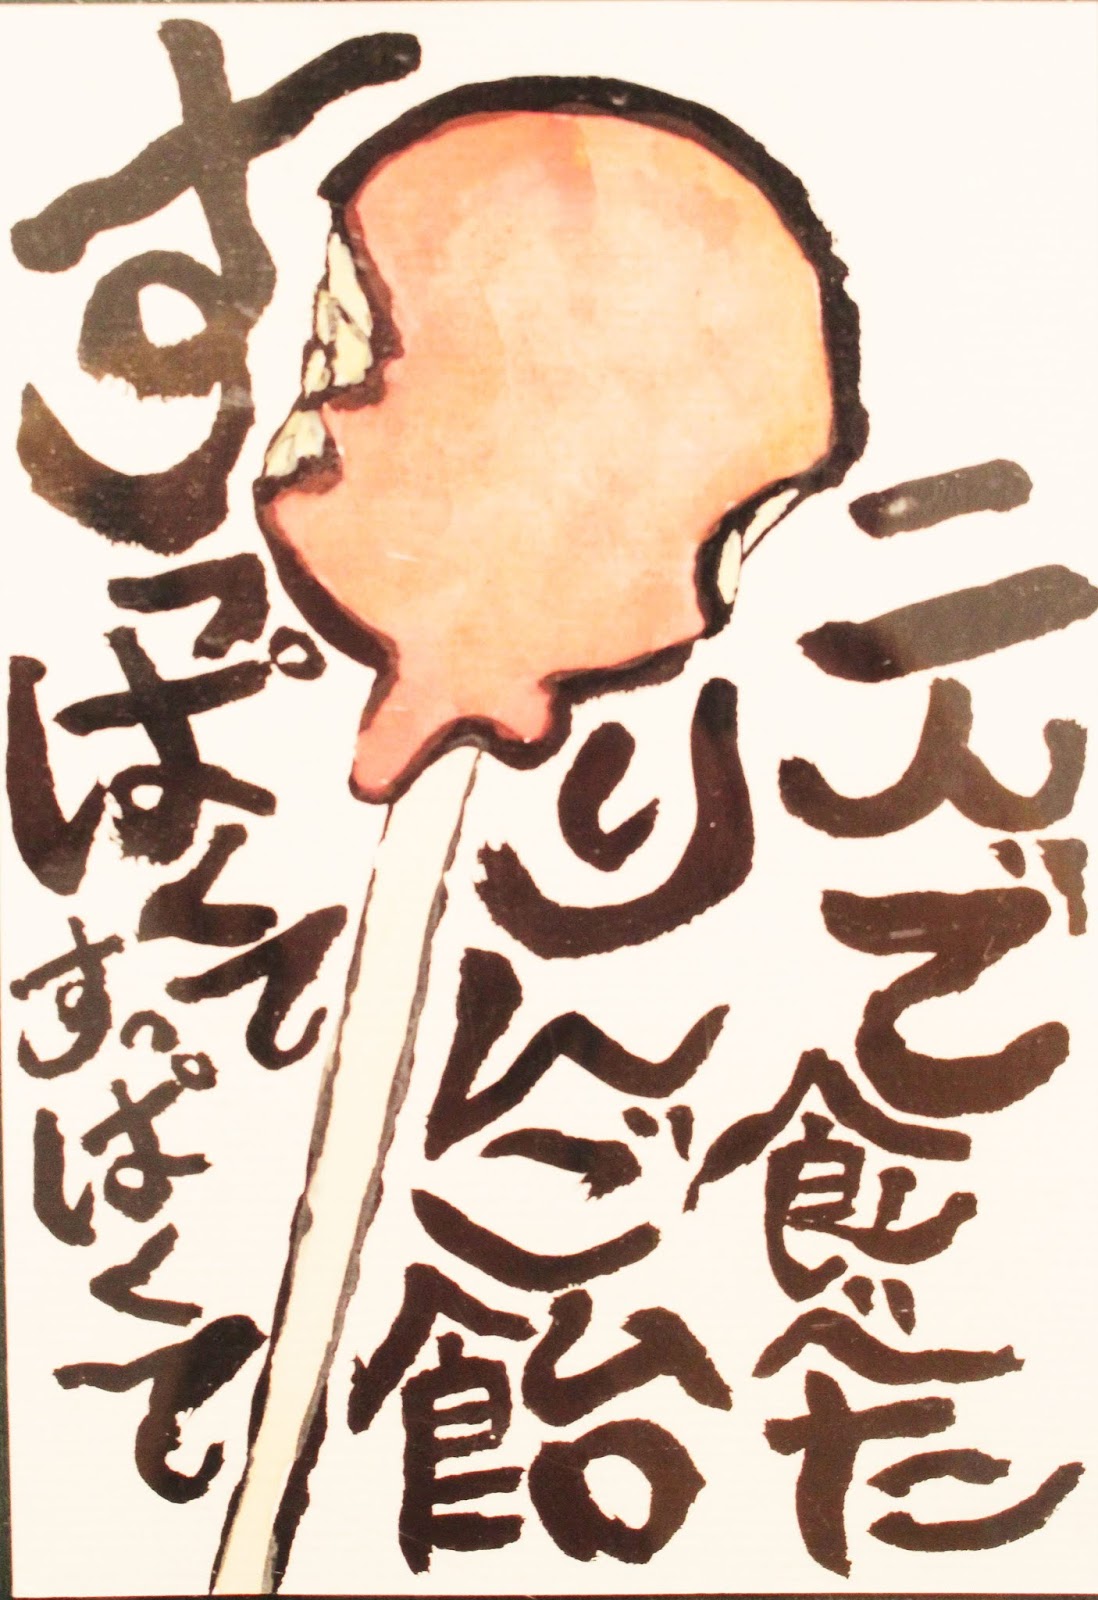 二人で食べた
りんご飴
すっぱくてすっぱくて